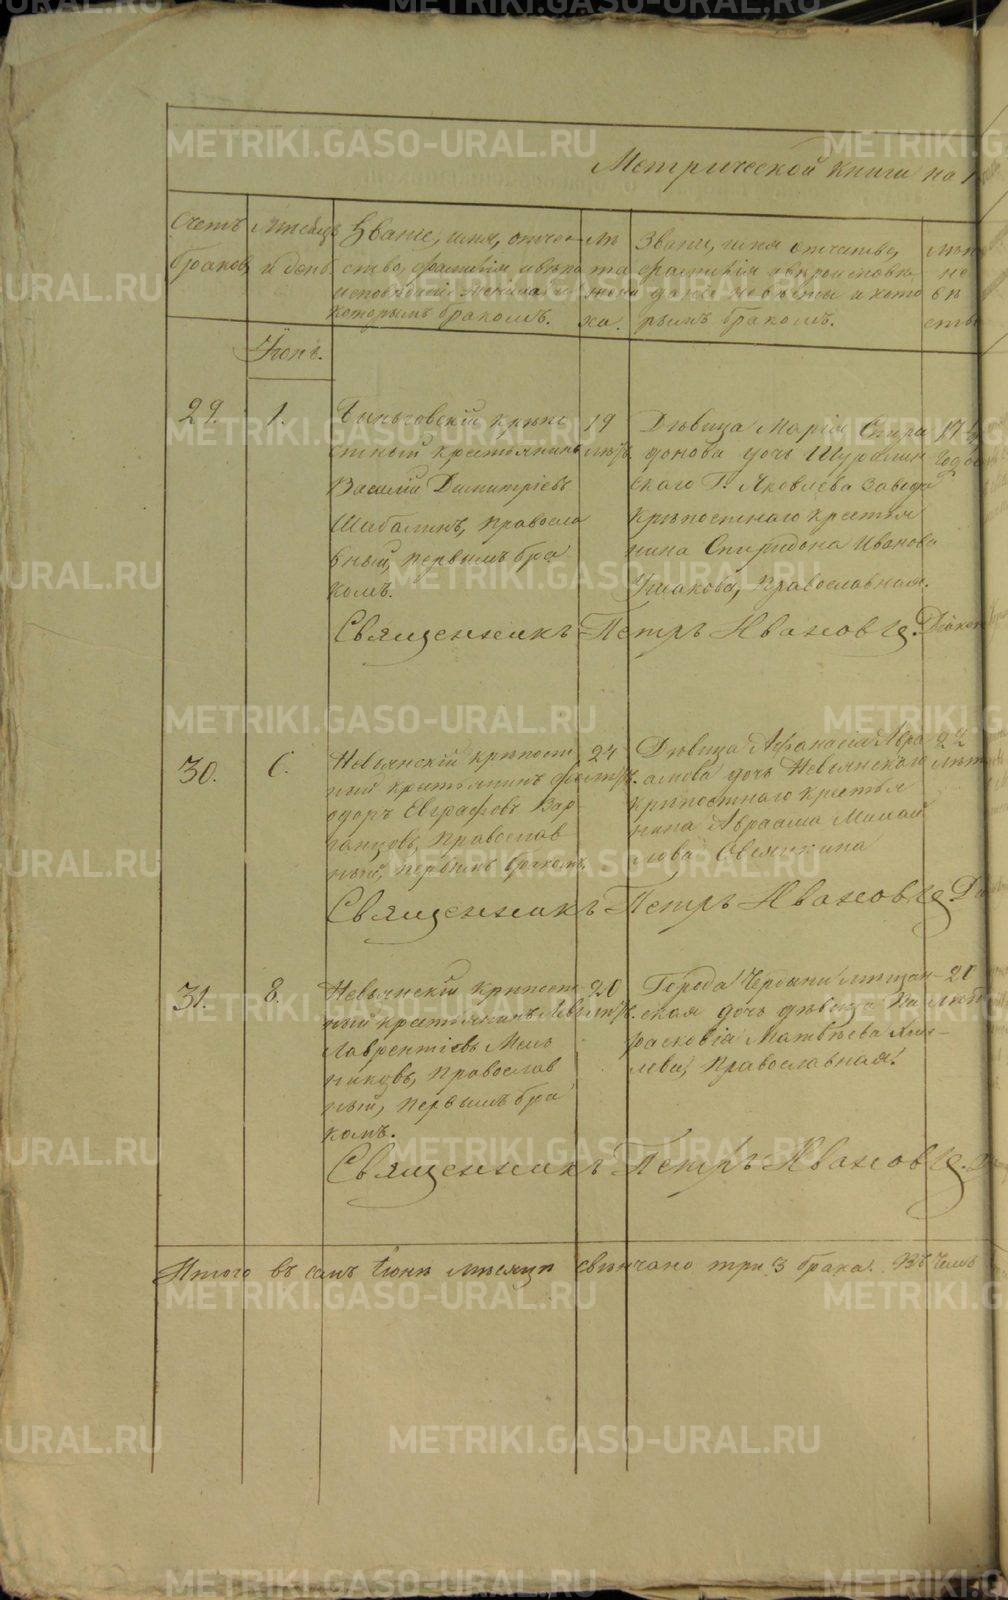 Метрической книги на 1
Счетъ
браковъ
Мѣсяцъ
и день
Званіе, имя, отче-
ство, фамилія и вѣро
исповѣданіе жениха, и
которымъ бракомъ.
Лѣ
та
жени
ха.
Званіе, имя отчество,
фамилія и вѣроисповѣ
даніе невѣсты и кото
рымъ бракомъ.
не
вѣ
сты
Іюнь.
29.
1.
крѣпо
стной крестьянинъ
Василій Димитріевъ
Шабалинъ, правосла
вный, первымъ бра
комъ.
19
лѣтъ.
Дѣвица Марія Спири
донова дочь Шуралин
скаго Г. Яковлева завода
крѣпостнаго крестья
нина Спиридона Иванова
Ушакова, Православная.
17½
Священникъ Петръ Ивановъ. Діакон
30.
6.
Невьянскій крѣпост
ный крестьянинъ Фе
одоръ Евграфовъ
Православ
ный, первымъ бракомъ.
24
лѣтъ.
Дѣвица Афанасія Авра
амова дочь Невьянскаго
крѣпостнаго крестья
нина Авраама Михай
лова
22
лѣт
Священникъ Петръ Ивановъ. Діа
31.
8.
Невьянскій Крѣпост
ный крестьянинъ
Лаврентіевъ Мель
никовъ, Православ
ный, первымъ бра
комъ.
20
лѣтъ.
Города Чердыни мѣщан-
ская дочь дѣвица Па
расковія Матвѣева
Православная.
20
лѣт
Священникъ Петръ Ивановъ.
Итого въ семъ Іюнѣ мѣсяцѣ свѣнчано три 3 брака. Въ чемъ
METRIKI.GASO-URAL.RU